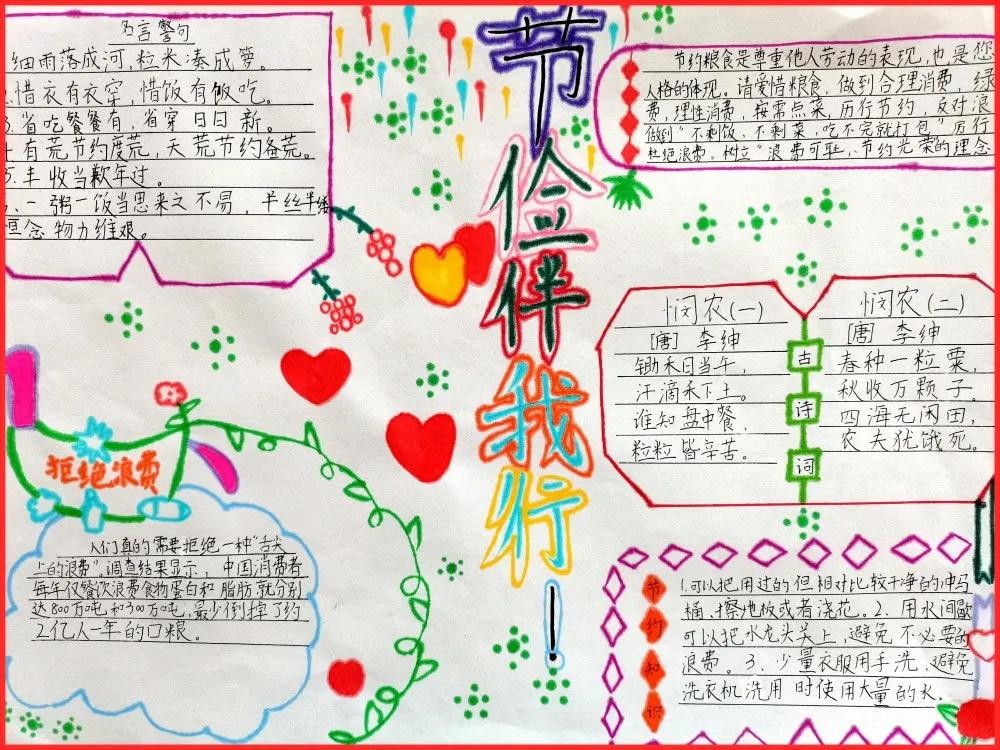 名言警句
细雨落成河,粒米凑成箩。
2.惜衣有衣穿,惜饭有饭吃。
3.省吃餐餐有,省穿日日新。
有荒节约度荒,无荒节约备荒。
5.丰收当歉年过。
一粥一饭当思来之不易,半丝半缕
恒念物力维艰。
节
俭
伴
我
行
!
节约粮食是尊重他人劳动的表现,也是您
人格的体现。请爱惜粮食,做到合理消费,绿
费,理性消费,按需点菜,厉行节约,反对浪
做到“不剩饭、不剩菜,吃不完就打包”厉行
杜绝浪费.树立“浪费可耻、节约光荣的理念
悯农(一)
[唐] 李绅
锄禾日当午,
汗滴禾下土。
谁知盘中餐,
粒粒皆辛苦。
古
诗
词
悯农(二)
[唐] 李绅
春种一粒粟,
秋收万颗子.
四海无闲田,
农夫犹饿死。
拒绝浪费
人们真的需要拒绝一种“舌尖
上的浪费”.调查结果显示,中国消费者
每年仅餐饮浪费食物蛋白和脂肪就分别
达800万吨和300万吨,最少倒掉了约
2亿人一年的口粮。
节
约
知
识
1.可以把用过的但相对比较干净的冲马
桶、擦地板或者浇花。2.用水间歇
可以把水龙头关上,避免不必要的
浪费。3、少量衣服用手洗,避免
洗衣机洗用时使用大量的水.